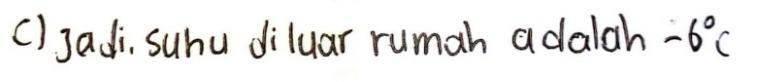 c) Jadi. suhu diluar rumah adalah -6°C